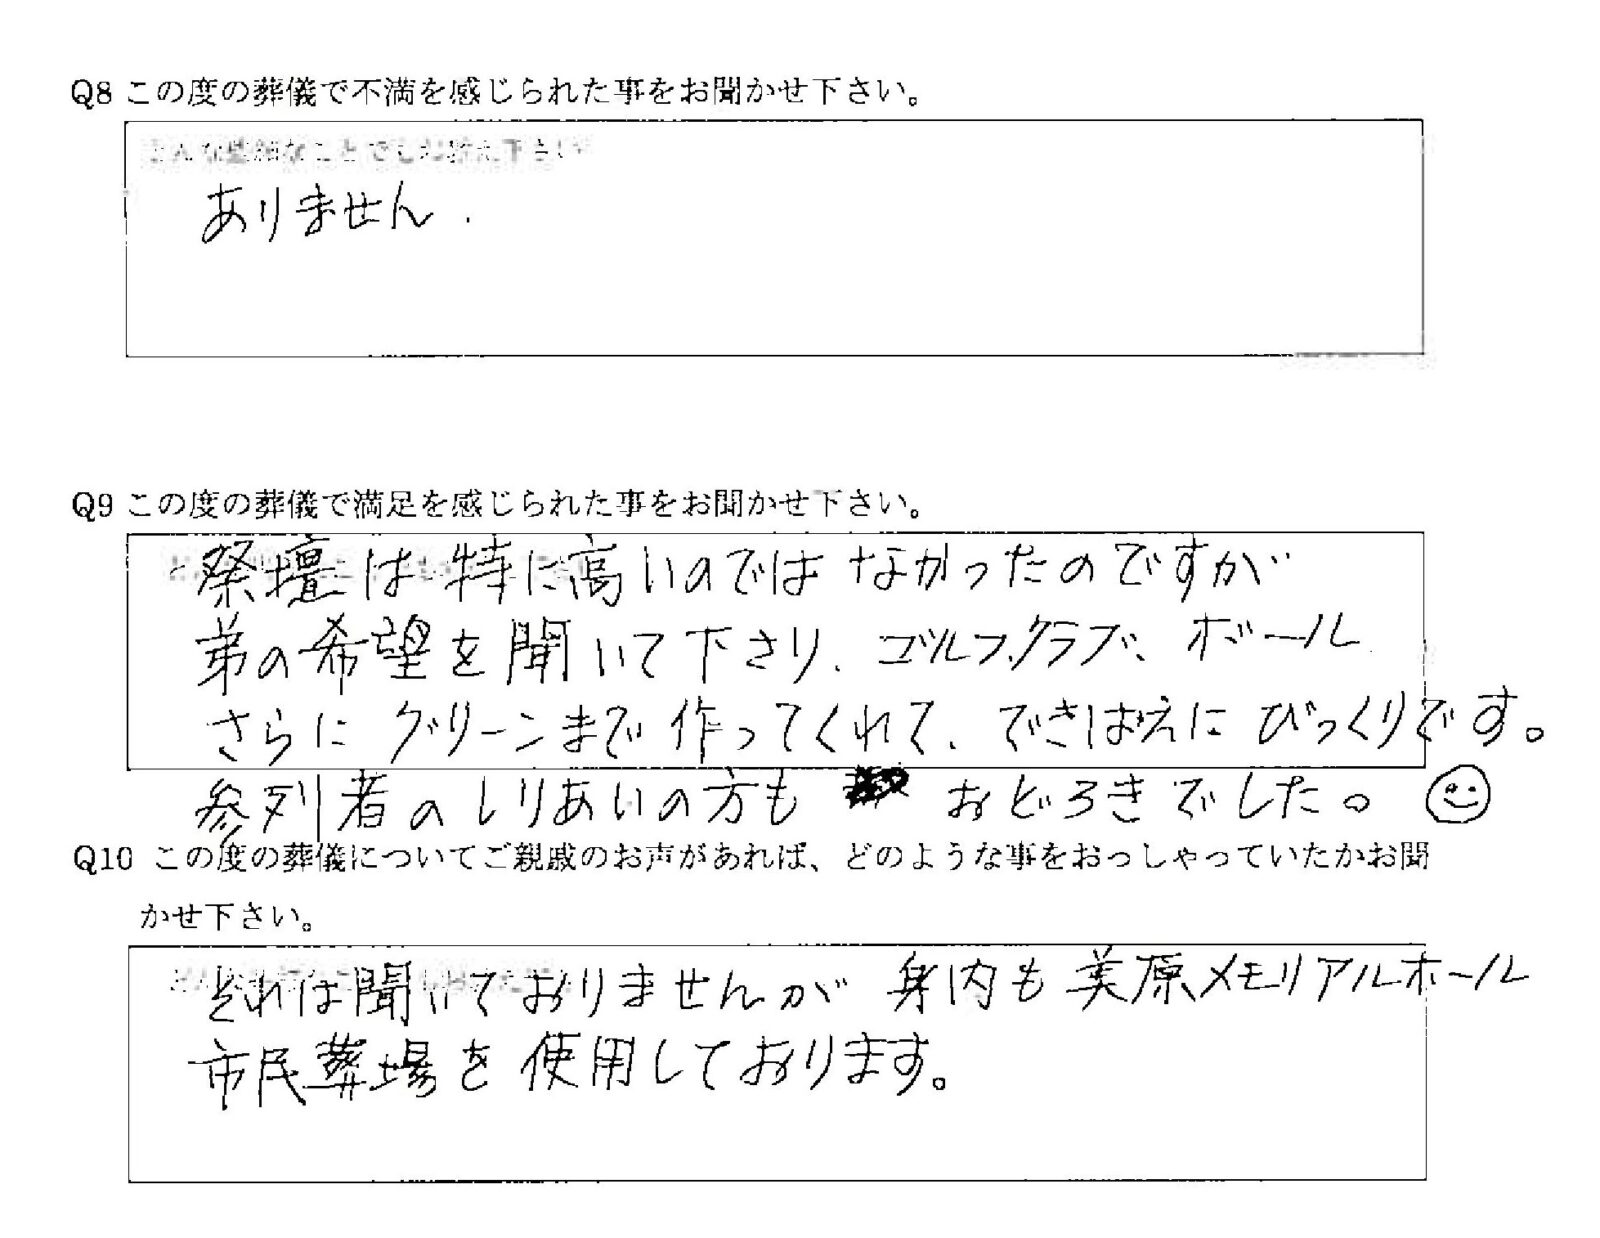 Q8 この度の葬儀で不満を感じられた事をお聞かせ下さい。
どんな些細なことでもお教え下さい
ありません.
Q9 この度の葬儀で満足を感じられた事をお聞かせ下さい。
祭壇は特に高いのではなかったのですが
弟の希望を聞いて下さり、ゴルフクラブ、ボール
さらにグリーンまで作ってくれて、できばえにびっくりです。
参列者のしりあいの方も おどろきでした。
Q10 この度の葬儀についてご親戚のお声があれば、どのような事をおっしゃっていたかお聞
かせ下さい。
それは聞いておりませんが 身内も美原メモリアルホール
市民葬場を使用しております。